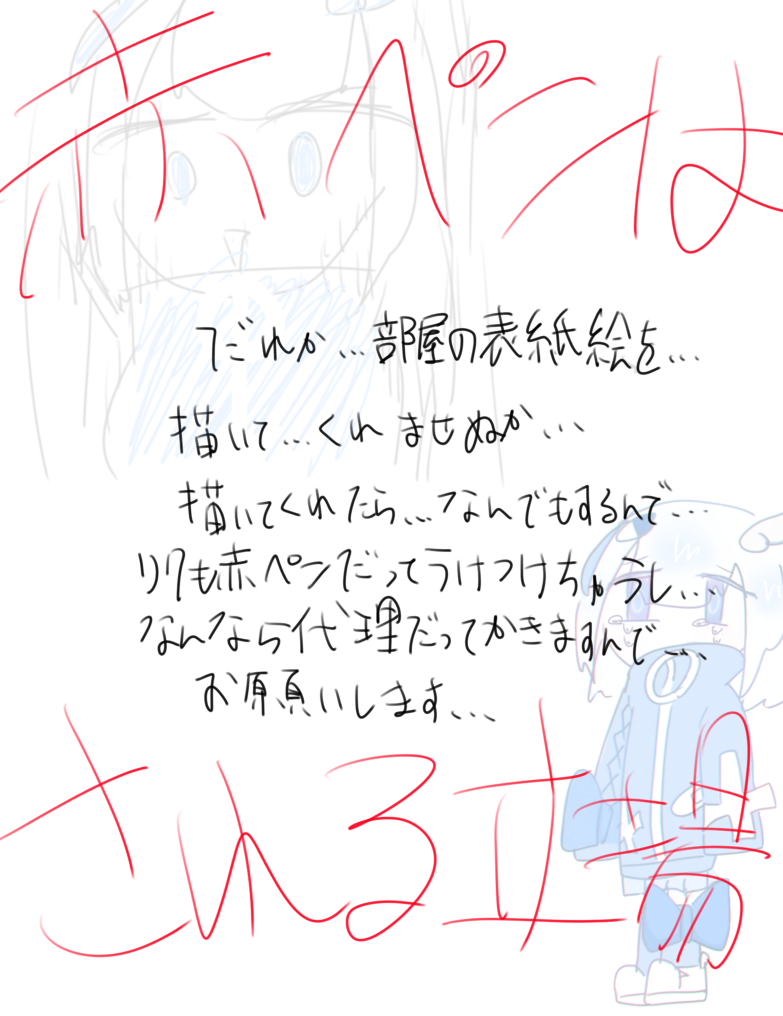 赤ペンは
だれか…部屋の表紙絵を…
描いて…くれませぬか…
描いてくれたら…なんでもするんで…
リクも赤ペンだってうけつけちゃうし…
なんなら代理だってかきますんで…
お願いします…
される立場